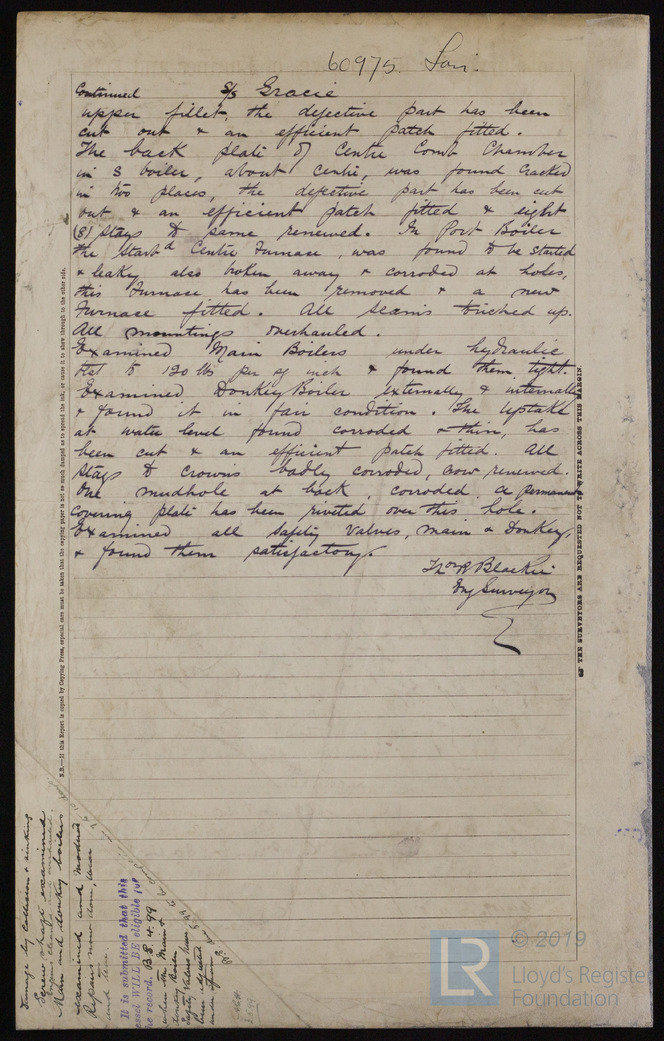 60975 Lon.
Continued S/S Gracie
upper fillet, the defective part has been
cut out & an efficient patch fitted.
The back plate of Centre Comb Chamber
in S boiler, about centre, was found cracked
in two places, the defective part has been cut
out & an efficient patch fitted & eight
(8) stays to same renewed. In Port Boiler
the Starbd Centre Furnace, was found to be started
& leaky also broken away & corroded at holes,
this Furnace has been removed & a new
Furnace fitted. All seams caulked up.
All mountings overhauled.
Examined Main Boilers under hydraulic
test to 120 lbs per sq inch & found them tight.
Examined Donkey Boiler externally & internally
& found it in fair condition. The uptake
at water level found corroded & thin, has
been cut & an efficient patch fitted. All
stays to crowns badly corroded, now renewed.
One mudhole at back, corroded, a permanent
covering plate has been riveted over this hole.
Examined all safety valves, main & Donkey,
& found them satisfactory.
Thos R Blackie
Eng Surveyor
N.B.—If this Report is copied by Copying Press, especial care must be taken that the copying paper is not so much damped as to spread the ink, or cause it to show through to the other side.
THE SURVEYORS ARE REQUESTED NOT TO WRITE ACROSS THIS MARGIN.
Damage by collision & sinking
Screw shaft examined
Main and donkey boilers
examined and
Repairs now done, wear
and tear.
It is submitted that this
vessel WILL BE eligible for
the record. B.S. 4.99
when the Main &
donkey Boiler
Safety Valves have
been adjusted
under steam
© 2019
LR
Lloyd's Register
Foundation